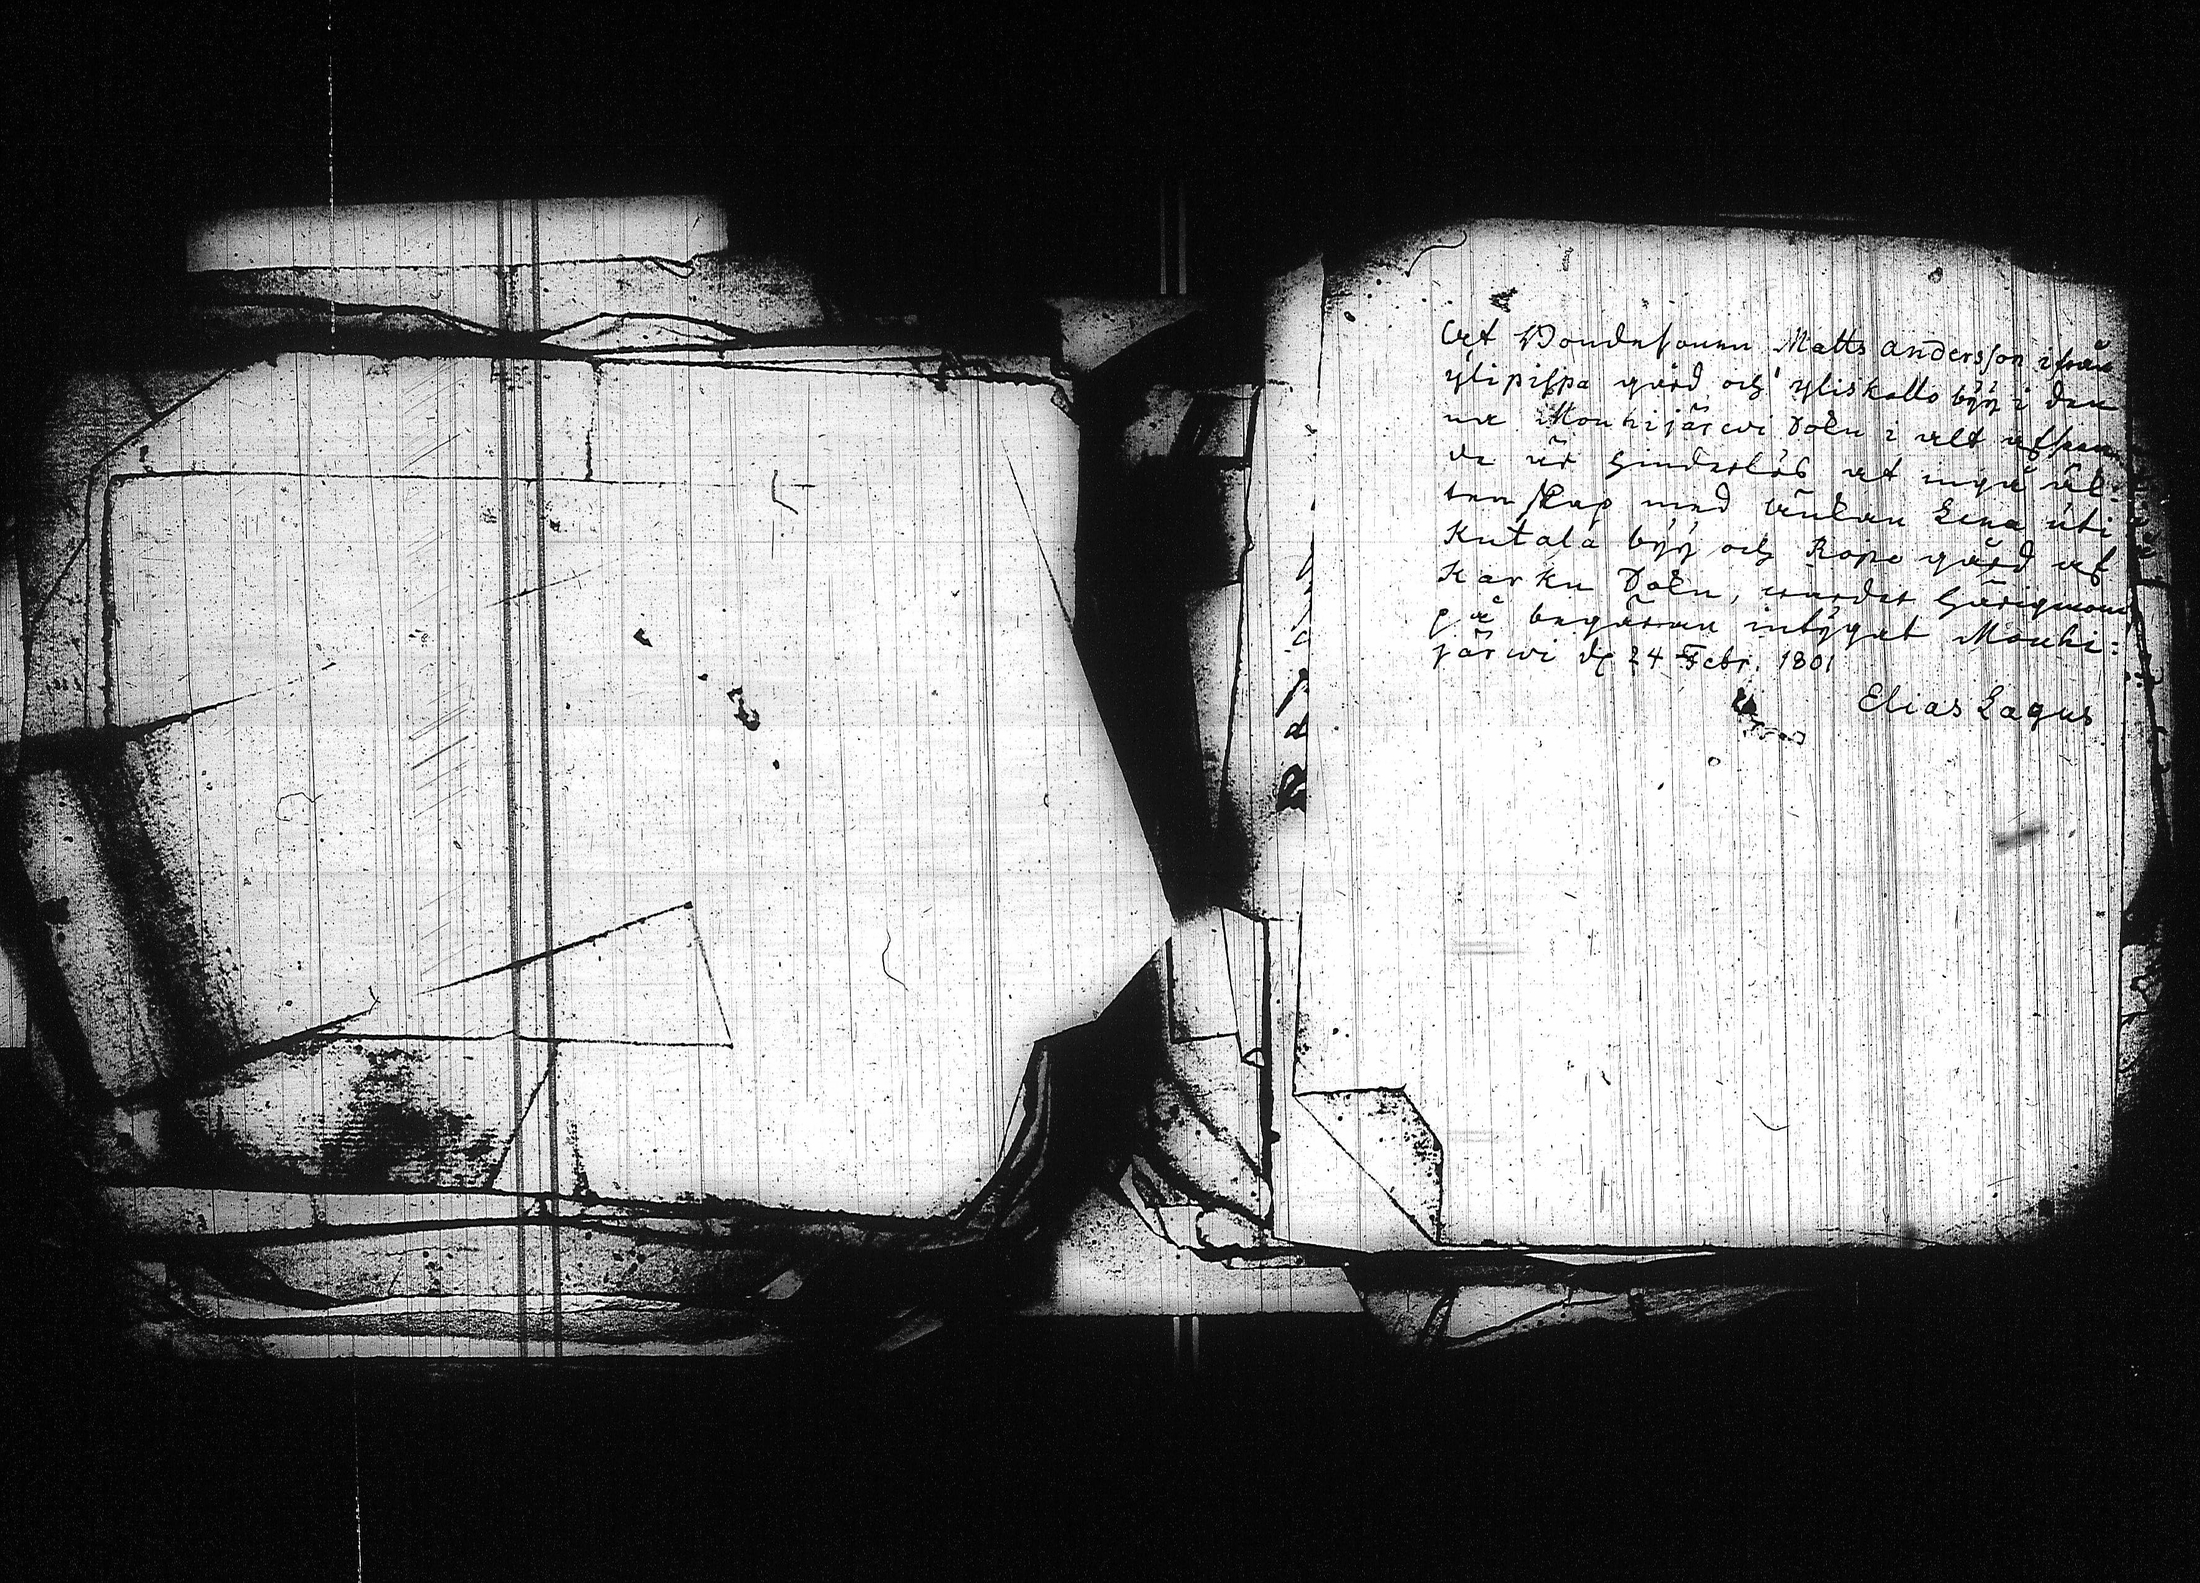 Att Bondesonen Matts Andersson ifrån
ylipispa gård och yliskallo býý i den
na Mouhijärwi Sokn i alt afseen
de är hinderlös at ingå äk:
tenskap med änkan Lena uti
Kutala býý och Ropo gård af
Karku Sokn, warder härigenom
på begäran intýgat Mouhi:
järwi d 24 Febr. 1801
Elias Lagus